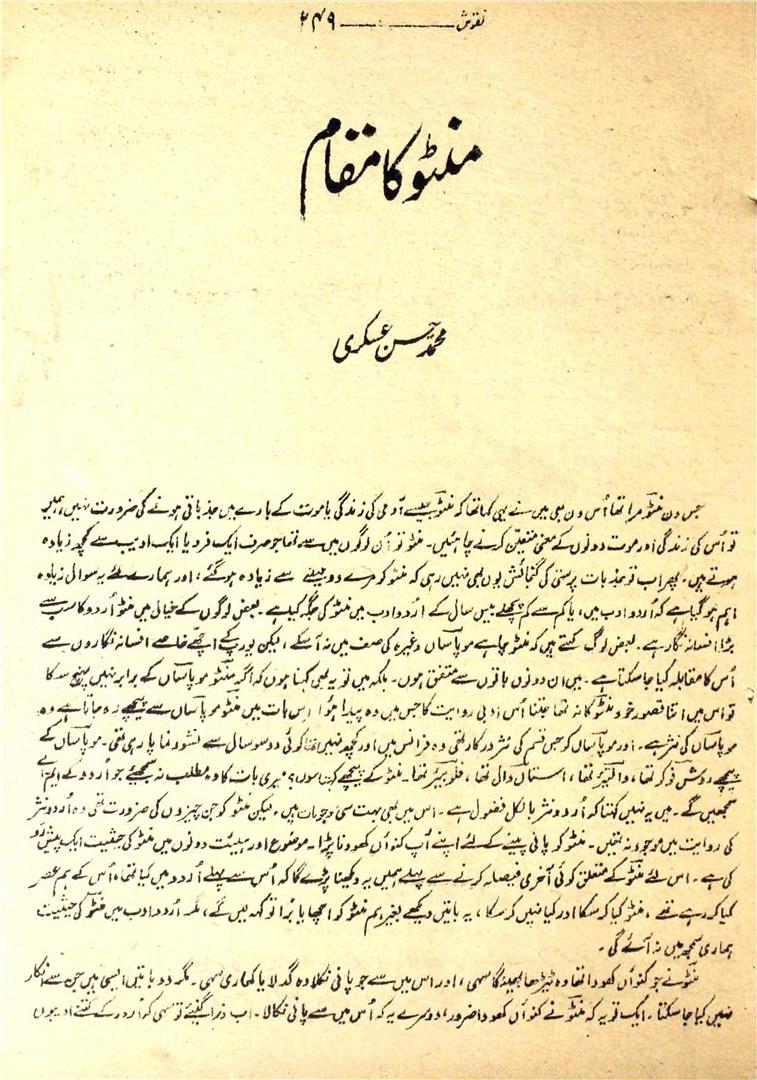 نقوش ـــــــــــ ۲۴۹
منٹو کا مقام
محمد حسن عسکری
جس دن منٹو مرا تھا اُس دن بھی میں نے یہی کہا تھا کہ منٹو جیسے آدمی کی زندگی یا موت کے بارے میں جذباتی ہونے کی ضرورت نہیں ہمیں
تو اُس کی زندگی اور موت دونوں کے معنی متعین کرنے چاہئیں۔ منٹو تو اُن لوگوں میں سے تھا جو صرف ایک فرد یا ایک ادیب سے کچھ زیادہ
ہوتے ہیں۔ پھر اب تو جذبات پرستی کی گنجائش یوں بھی نہیں رہی کہ منٹو کو مرے دو مہینے سے زیادہ ہو گئے، اور ہمارے لئے یہ سوال زیادہ
اہم ہو گیا ہے کہ اُردو ادب میں، یا کم سے کم پچھلے بیس سال کے اردو ادب میں منٹو کی جگہ کیا ہے۔ بعض لوگوں کے خیال میں منٹو اُردو کا سب سے
بڑا افسانہ نگار ہے۔ بعض لوگ کہتے ہیں کہ منٹو چاہے موپاساں وغیرہ کی صف میں نہ آسکے، لیکن یورپ کے اچھے خاصے افسانہ نگاروں سے
اُس کا مقابلہ کیا جا سکتا ہے۔ میں ان دونوں باتوں سے متفق ہوں۔ بلکہ میں تو یہ بھی کہتا ہوں کہ اگر منٹو موپاساں کے برابر نہیں پہنچ سکا
تو اس میں اتنا قصور خود منٹو کا نہ تھا جتنا اُس ادبی روایت کا جس میں وہ پیدا ہوا اس بات میں منٹو موپاساں سے پیچھے رہ جاتا ہے وہ
موپاساں کی نثر ہے۔ اور موپاساں کو جس قسم کی نثر درکار تھی وہ فرانس میں اور کچھ نہیں تھا کوئی دو سو سال سے نشوونما پا رہی تھی۔ موپاساں کے
پیچھے روش فوکو تھا، والتیئر تھا، استاں دال تھا، فلوبیئر تھا۔ منٹو کے پیچھے کتنا سوں؟ میری بات کا وہ مطلب نہ سمجھیئے جو اُردو کے ایم اے
سمجھیں گے۔ میں یہ نہیں کہتا کہ اُردو نثر بالکل فضول ہے۔ اس میں بھی بہت سی وجوہات ہیں۔ لیکن منٹو کو جن چیزوں کی ضرورت تھی وہ اُردو نثر
کی روایت میں موجود نہ تھیں۔ منٹو کو پانی پینے کے لئے اپنے آپ کنواں کھودنا پڑا۔ موضوع اور ہیئت دونوں میں منٹو کی حیثیت ایک پیش رو
کی ہے۔ اس لئے منٹو کے متعلق کوئی آخری فیصلہ کرنے سے پہلے ہمیں یہ دیکھنا پڑے گا کہ اُس سے پہلے اُردو میں کیا تھا، اُس کے ہم عصر
کیا کر رہے تھے، منٹو کیا کر سکا اور کیا نہیں کر سکا، یہ باتیں دیکھے بغیر ہم منٹو کو اچھا یا بُرا تو کہہ لیں گے، مگر اُردو ادب میں منٹو کی حیثیت
ہماری سمجھ میں نہ آئے گی۔
منٹو نے جو کنواں کھودا تھا وہ ٹیڑھا بھینگا سہی، اور اس میں سے جو پانی نکلا وہ گدلا یا کھاری سہی۔ مگر دو باتیں ایسی ہیں جن سے انکار
نہیں کیا جا سکتا۔ ایک تو یہ کہ منٹو نے کنواں کھودا ضرور، دوسرے یہ کہ اُس میں سے پانی نکالا۔ اب ذرا گنیئے تو سہی کہ اُردو کے کتنے ادیبوں